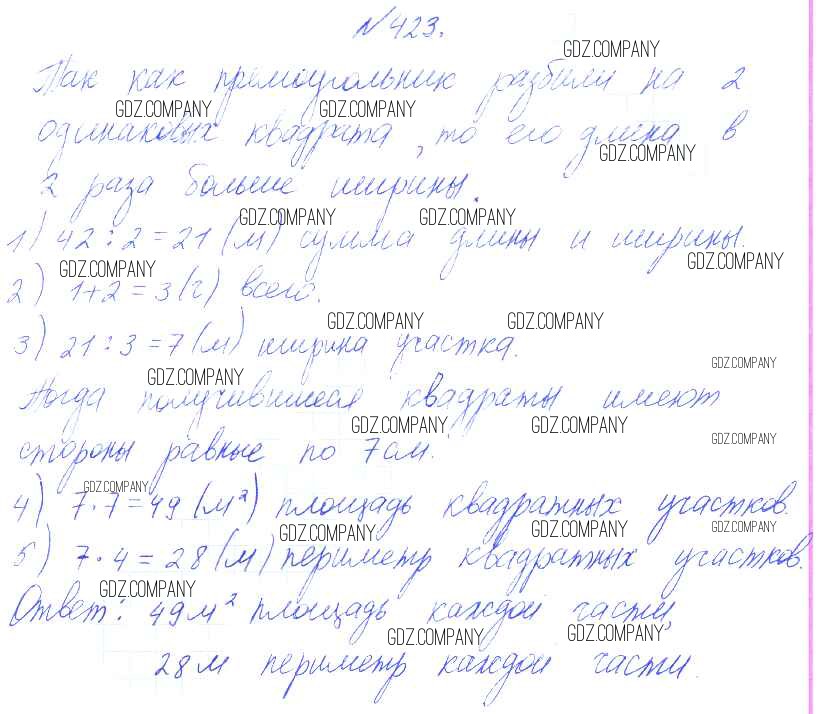 №423.
Так как прямоугольник разбили на 2
одинаковых квадрата, то его длина в
2 раза больше ширины.
1) 42 : 2 = 21 (м) сумма длины и ширины.
2) 1+2 = 3 (ч) всего.
3) 21 : 3 = 7 (м) ширина участка.
Тогда получившиеся квадраты имеют
стороны равные по 7см.
4) 7 · 7 = 49 (м²) площадь квадратных участков.
5) 7 · 4 = 28 (м) периметр квадратных участков.
Ответ: 49м² площадь каждой части,
28м периметр каждой части.
GDZ.COMPANY
GDZ.COMPANY GDZ.COMPANY
GDZ.COMPANY
GDZ.COMPANY GDZ.COMPANY
GDZ.COMPANY
GDZ.COMPANY
GDZ.COMPANY GDZ.COMPANY
GDZ.COMPANY
GDZ.COMPANY
GDZ.COMPANY GDZ.COMPANY
GDZ.COMPANY
GDZ.COMPANY
GDZ.COMPANY GDZ.COMPANY GDZ.COMPANY
GDZ.COMPANY
GDZ.COMPANY GDZ.COMPANY